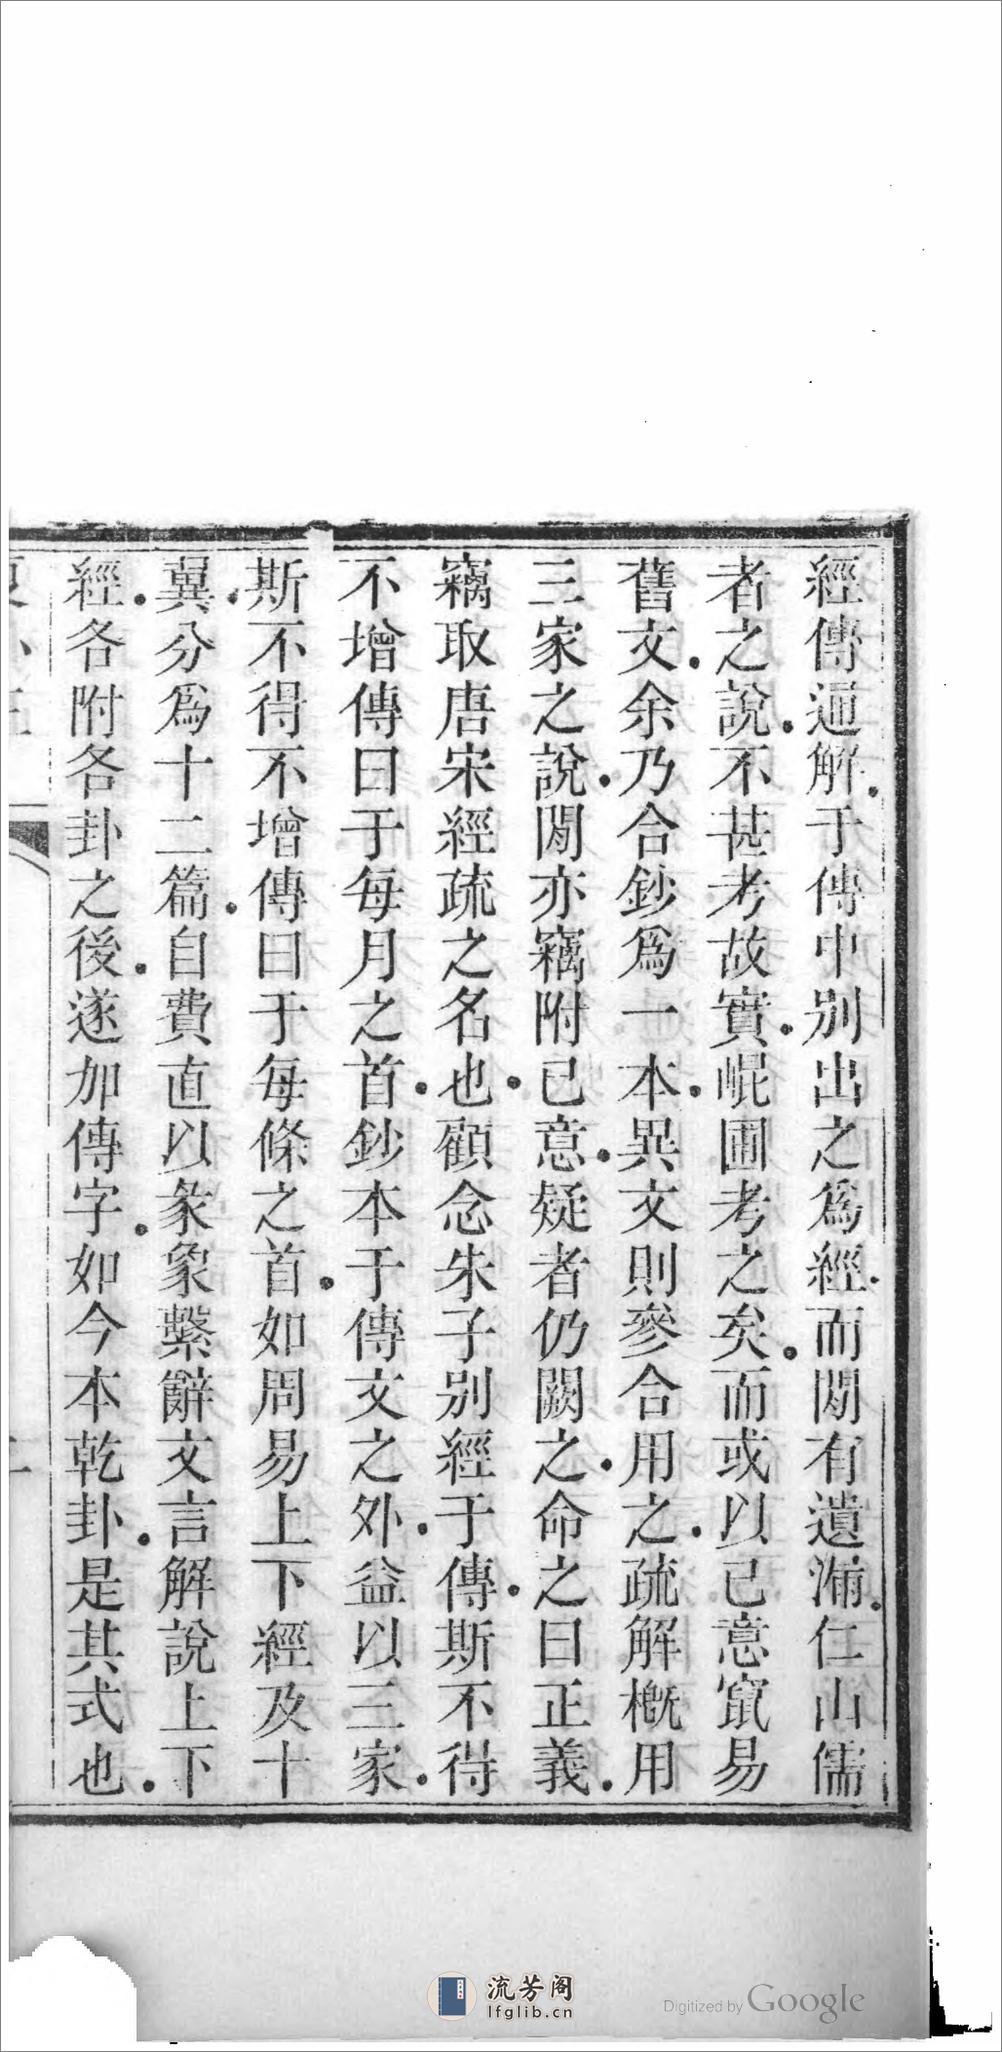 經傳通解于傳中別出之爲經而閒有遺漏仁山儒
者之說不甚考故實崐圃考之矣而或以己意竄易
舊文余乃合鈔爲一本異文則參合用之疏解槪用
三家之說閒亦竊附己意疑者仍闕之命之曰正義
竊取唐宋經疏之名也顧念朱子別經于傳斯不得
不增傳曰于每月之首鈔本于傳文之外益以三家
斯不得不增傳曰于每條之首如周易上下經及十
翼分爲十二篇自費直以彖象繫辭文言解說上下
經各附各卦之後遂加傳字如今本乾卦是其式也
流芳阁
lfglib.cn
Digitized by Google